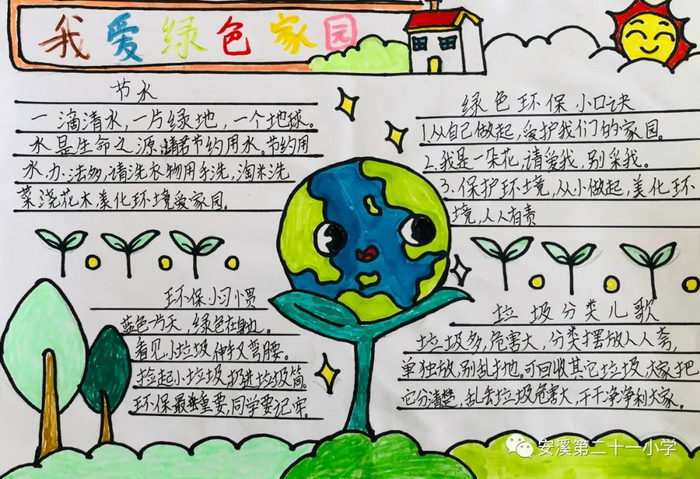 我爱绿色家园
节水
一滴清水,一片绿地,一个地球。
水是生命之源,请君节约用水。节约用
水,办法妙,请洗衣物用手洗,淘米洗
菜浇花木,美化环境爱家园。
绿色环保小口诀
1.从自己做起,爱护我们的家园。
2.我是一朵花,请爱我,别采我。
3.保护环境,从小做起,美化环
境,人人有责
环保小习惯
蓝色为天,绿色在身边。
看见小垃圾,伸手又弯腰。
捡起小垃圾,扔进垃圾筒。
环保最重要,同学要记牢。
垃圾分类儿歌
垃圾多,危害大,分类摆放人人夸,
单独放,别乱扔地,可回收其它垃圾,大家把
它分清楚,乱丢垃圾危害大,干干净净利大家。
安溪第二十一小学